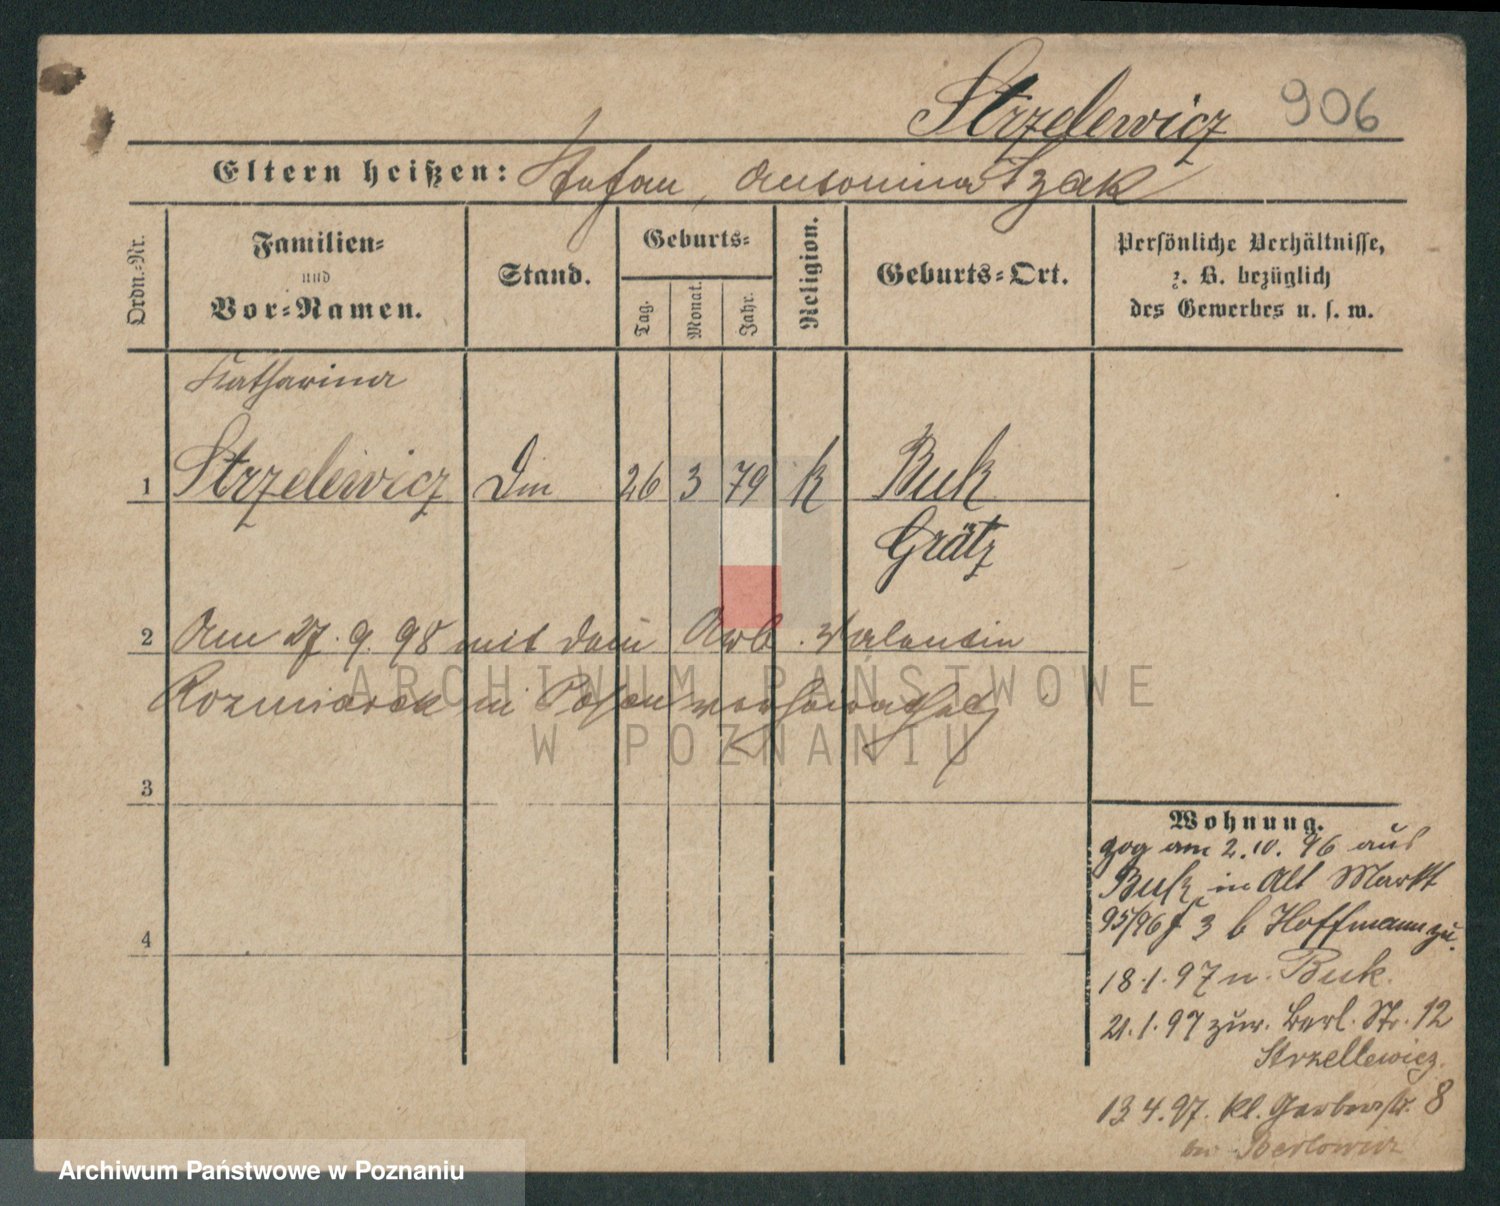 Strzelewicz 906
Eltern heißen: Stefan, Antonina Szak
Ordn.-Nr.
Familien-
und
Vor-Namen.
Stand.
Geburts-
Tag.
Monat.
Jahr.
Religion.
Geburts-Ort.
Persönliche Verhältnisse,
z. B. bezüglich
des Gewerbes u. s. w.
Katharina
1 Strzelewicz Din 26 3 79 k Buk
Grätz
2 Am 27.9.98 mit dem Arb. Valentin
Rozmiarek in Posen verheirathet
3
4
Wohnung.
zog am 2.10.96 aus
Buk in Alt Markt
95/96 3 b Hoffmann zu.
18.1.97 n. Buk.
21.1.97 zur. Berl. Str. 12
Strzellewicz.
13.4.97. kl. Gerberstr. 8
bei
ARCHIWUM PAŃSTWOWE
W POZNANIU
Archiwum Państwowe w Poznaniu